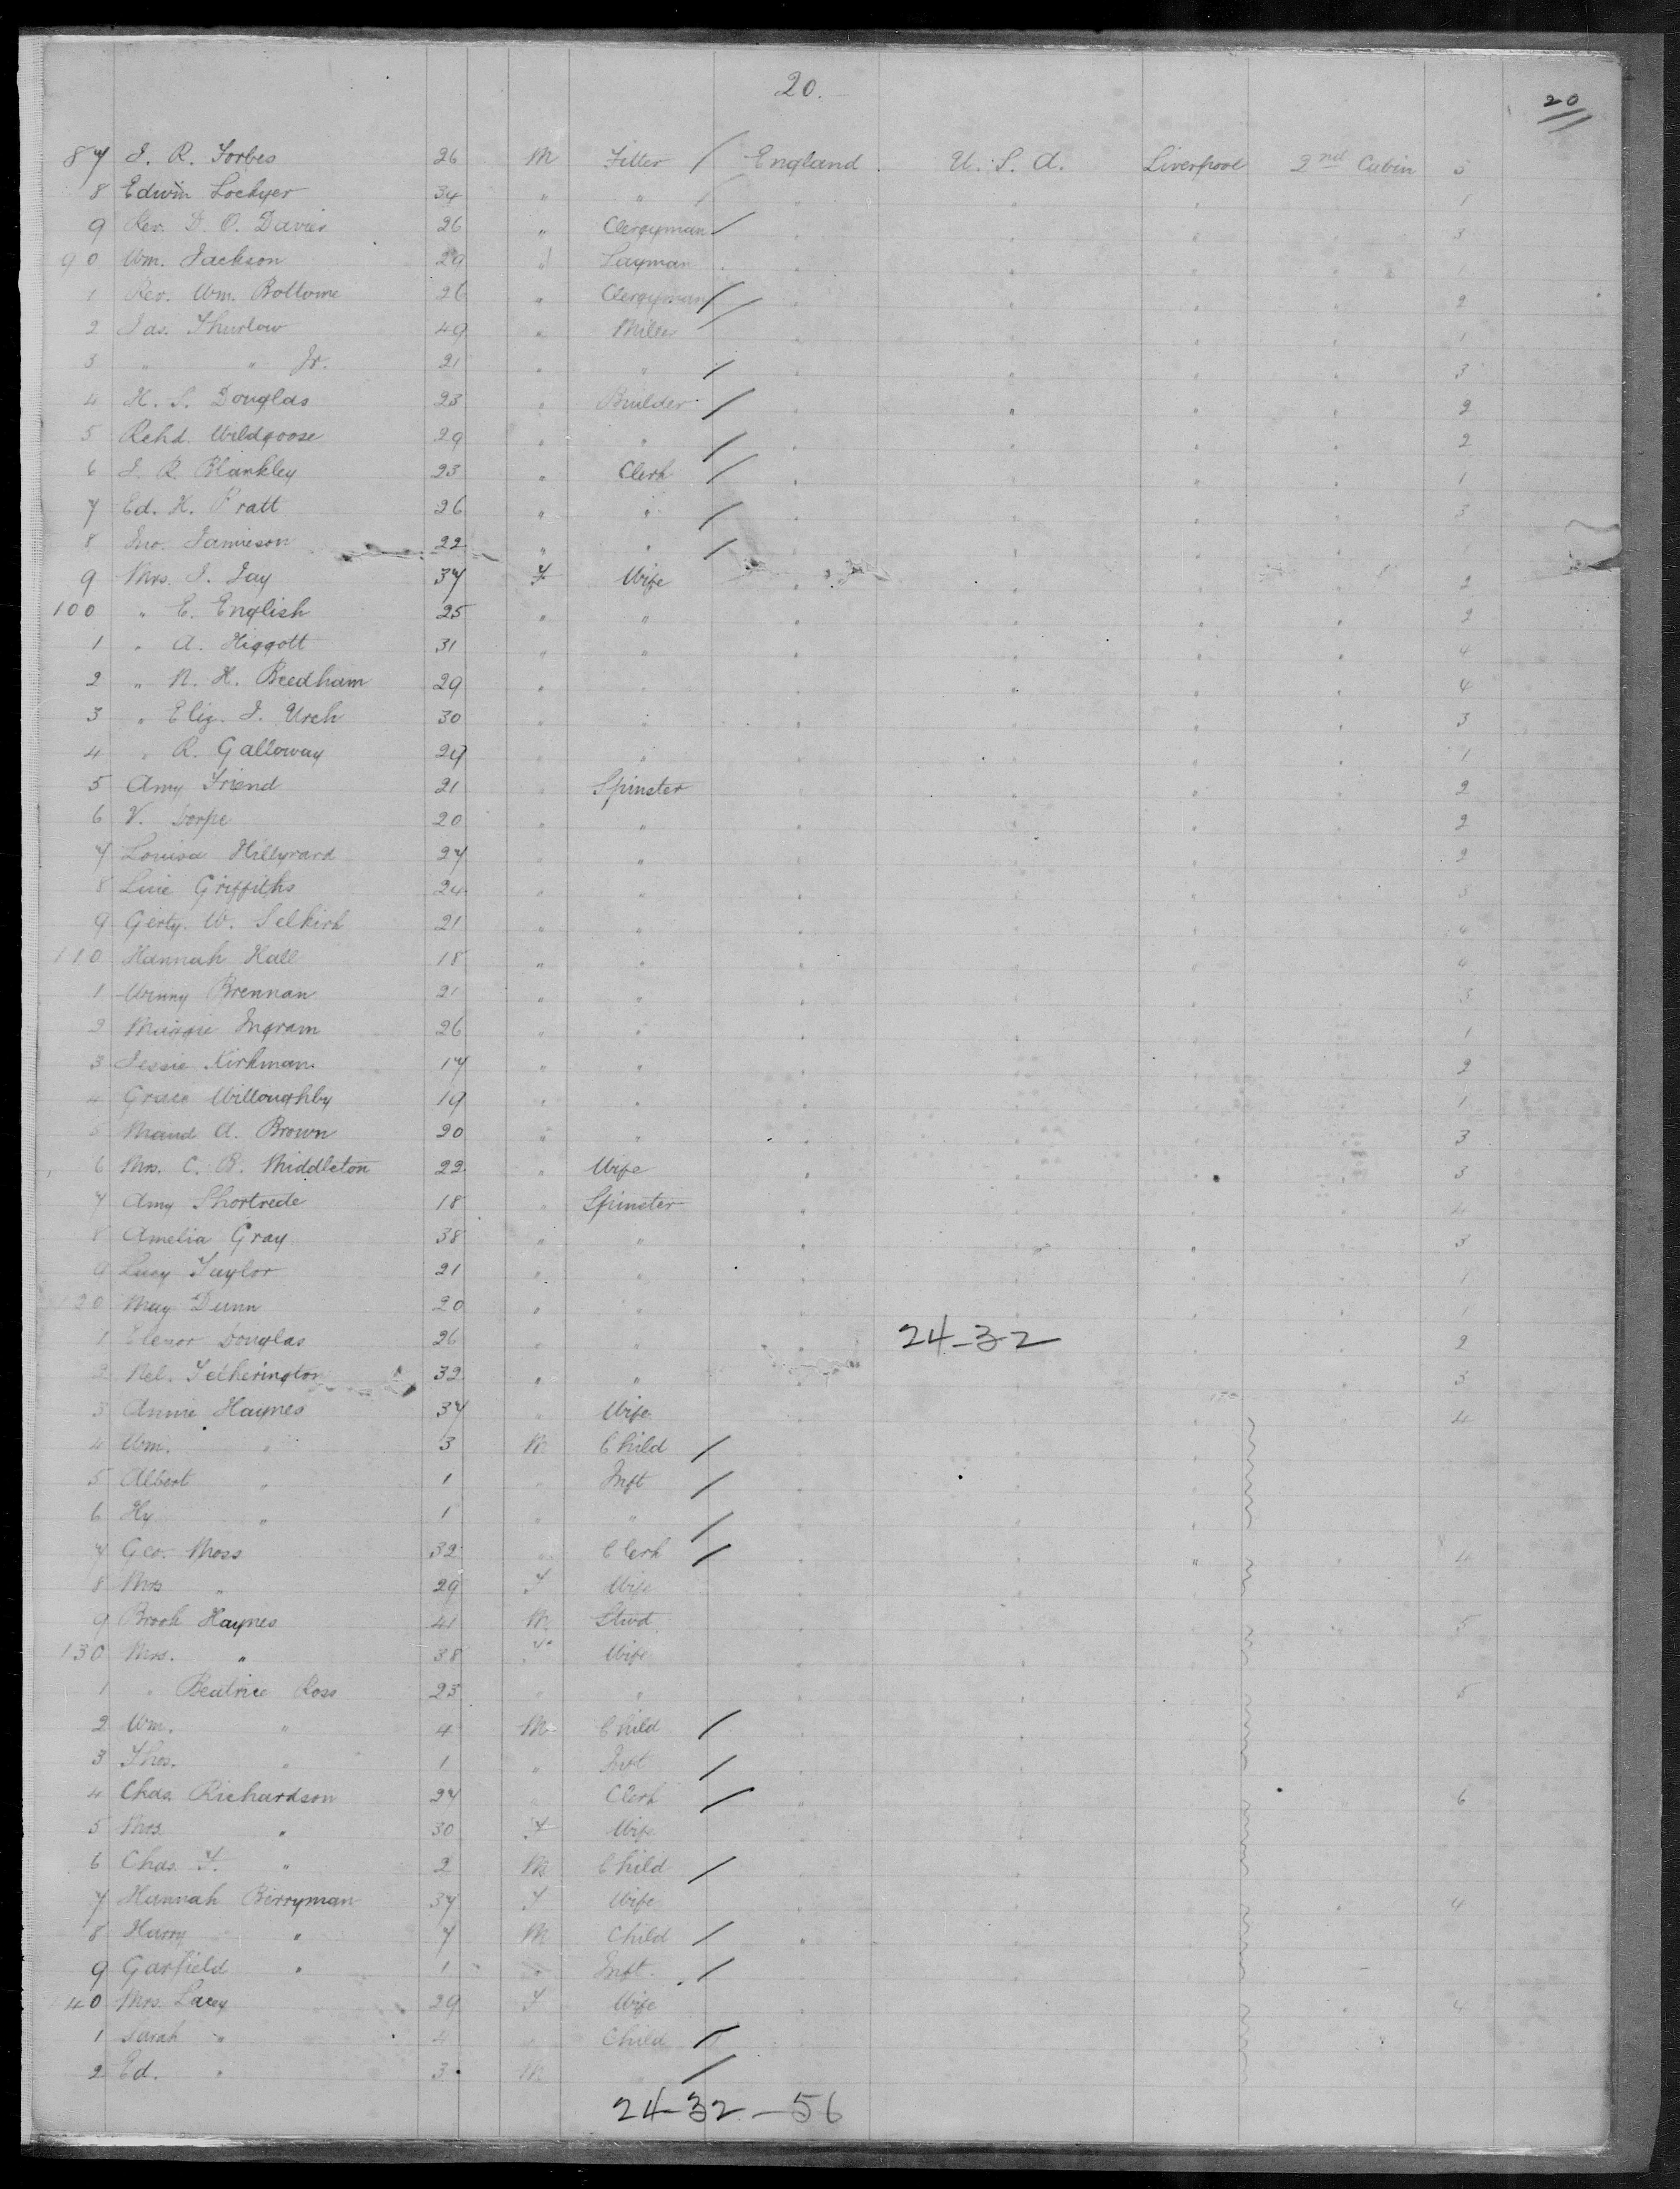 20.
20
87 J. R. Forbes 26 M Fitter / England. U. S. A. Liverpool 2nd Cabin 3
8 Edwin Lockyer 34 " " / " " " " 1
9 Rev. D. O. Davies 26 " Clergyman / " " " " 3
90 Wm. Jackson 29 " Layman " " " " 1
1 Rev. Wm. Bottome 26 " Clergyman / " " " " 2
2 Jas. Thurlow 49 " Miller / " " " " 1
3 " " Jr. 21 " " / " " " " 3
4 H. S. Douglas 23 " Builder / " " " " 2
5 Rchd. Wildgoose 29 " " / " " " " 2
6 J. R. Blankley 23 " Clerk / " " " " 1
7 Ed. H. Pratt 26 " " / " " " " 3
8 Jno. Jamieson 22 " " / " " " " 1
9 Mrs. J. Jay 37 F Wife " " " " 2
100 " E. English 25 " " " " " " 2
1 " A. Higgott 31 " " " " " " 4
2 " N. H. Beedham 29 " " " " " " 4
3 " Eliz. J. Urch 30 " " " " " " 3
4 " R. Galloway 27 " " " " " " 1
5 Amy Friend 21 " Spinster " " " " 2
6 V. Dorpe 20 " " " " " " 2
7 Louisa Hillyrard 27 " " " " " " 2
8 Luie Griffiths 24 " " " " " " 3
9 Gerty. W. Selkirk 21 " " " " " " 4
110 Hannah Hall 18 " " " " " " 4
1 Winny Brennan 21 " " " " " " 3
2 Maggie Ingram 26 " " " " " " 1
3 Jessie Kirkman 17 " " " " " " 2
4 Grace Willoughby 19 " " " " " " 1
5 Maud A. Brown 20 " " " " " " 3
6 Mrs. C. B. Middleton 22 " Wife " " " " 3
7 Amy Shortrede 18 " Spinster " " " " 4
8 Amelia Gray 38 " " " " " " 3
9 Lucy Taylor 21 " " " " " " 1
120 May Dunn 20 " " " " " " 1
1 Elenor Douglas 26 " " " 24-32 " " 2
2 Nel. Fetherington 32 " " " " " " 3
3 Annie Haynes 37 " Wife " " " " 4
4 Wm. " 3 M Child / " " "
5 Albert " 1 " Inft / " " "
6 Hy " 1 " " / " " "
7 Geo. Moss 32 " Clerk / " " " " 4
8 Mrs " 29 F Wife " " "
9 Brook Haynes 41 M Stwd. " " " " 5
130 Mrs. " 38 F Wife " " "
1 " Beatrice Ross 23 " " " " " " 5
2 Wm. " 4 M Child / " " "
3 Thos. " 1 " Inft / " " "
4 Chas. Richardson 27 " Clerk / " " " " 6
5 Mrs. " 30 F Wife " " "
6 Chas. F. " 2 M Child / " " "
7 Hannah Birryman 37 F Wife " " " " 4
8 Harry " 7 M Child / " " "
9 Garfield " 1 " Inft. / " " "
140 Mrs. Lacey 29 F Wife " " " " 4
1 Sarah " 4 " Child / " " "
2 Ed. " 3 M " / " " "
24-32-56